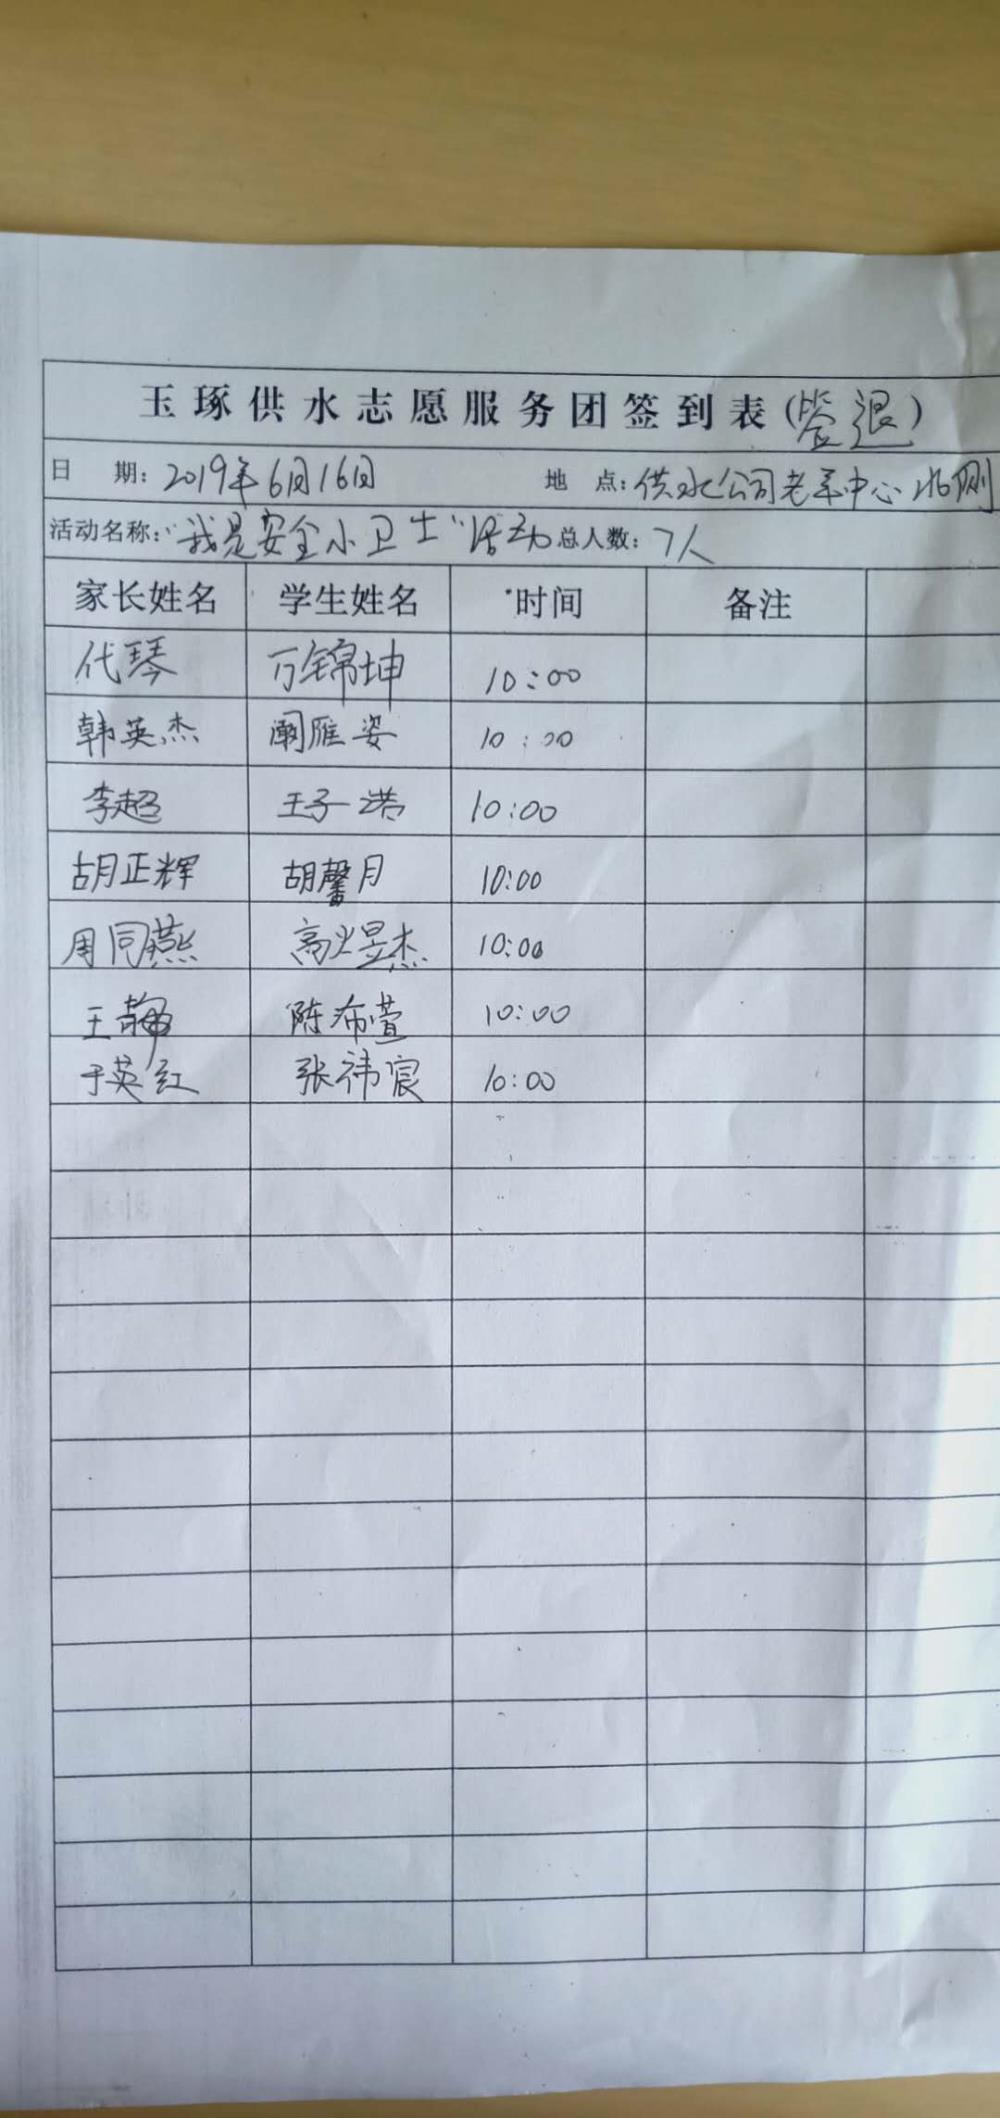 玉琢供水志愿服务团签到表(签退)
日 期: 2019年6月16日 地 点: 供水公司老年中心北侧
活动名称: "我是安全小卫士"活动 总人数: 7人
家长姓名 学生姓名 时间 备注
代琴 万锦坤 10:00
韩英杰 阚雁姿 10:00
李超 王子浩 10:00
胡正辉 胡馨月 10:00
周同燕 高业昱杰 10:00
王静 陈希萱 10:00
于英红 张祎宸 10:00